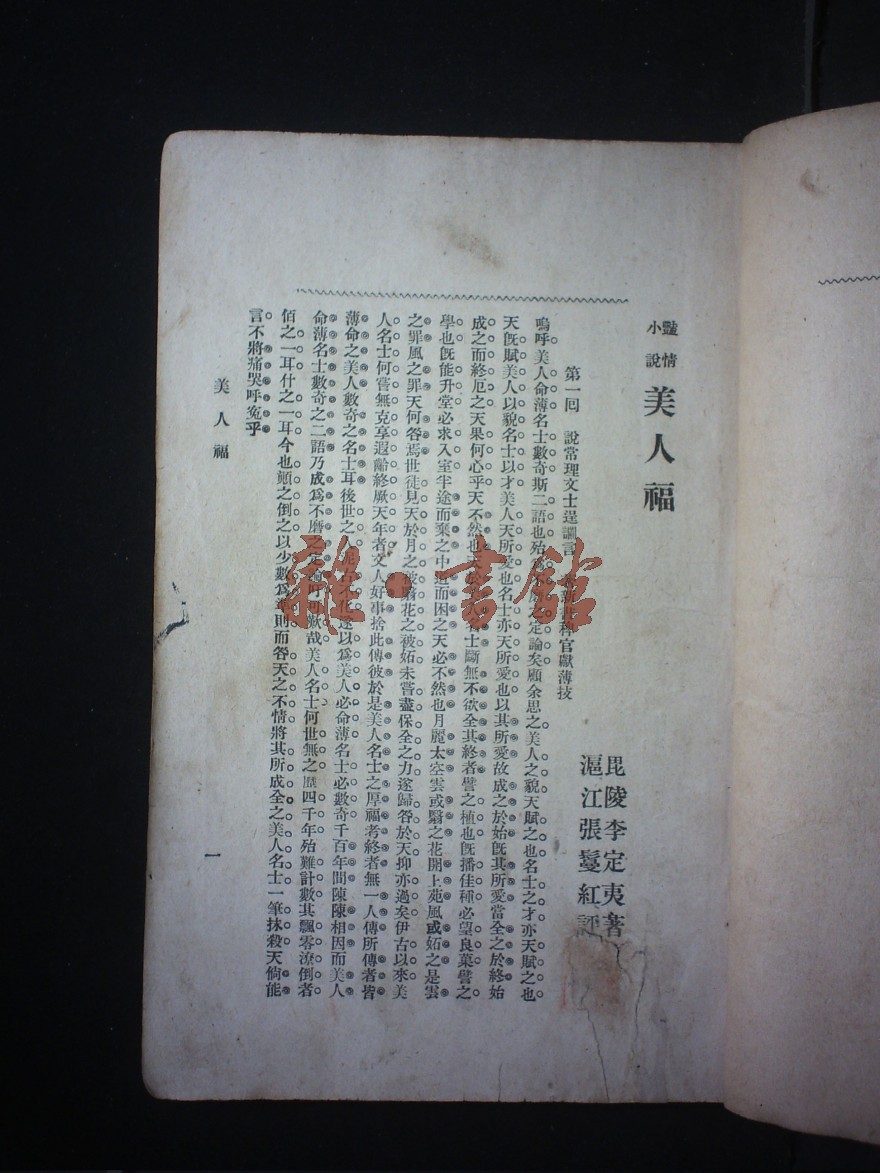 豔情小說
美人福
毘陵李定夷著
滬江張鬘紅評
第一回　說常理文士逞讕言　　新書稗官獻薄技
嗚呼美人命薄名士數奇斯二語也殆為不磨之定論矣顧余思之美人之貌天賦之也名士之才亦天賦之也
天旣賦美人以貌名士以才美人天所愛也名士亦天所愛也以其所愛故成之於始旣其所愛當全之於終始
成之而終厄之天果何心乎天不然也天 士斷無不欲全其終者譬之植也旣播佳種必望良菓譬之
學也旣能升堂必求入室半途而棄之中道而困之天必不然也月麗太空雲或翳之花開上苑風或妬之是雲
之罪風之罪天何咎焉世徒見天於月之被翳花之被妬未嘗盡保全之力遂歸咎於天抑亦過矣伊古以來美
人名士何嘗無克享遐齡終厥天年者文人好事捨此傳彼於是美人名士之厚福考終者無一人傳所傳者皆
薄命之美人數奇之名士耳後世之人泥古不化遂以爲美人必命薄名士必數奇千百年間陳陳相因而美人
命薄名士數奇之二語乃成爲不磨之定論吁可歎哉美人名士何世無之歷四千年殆難計數其飄零潦倒者
佰之一耳什之一耳今也顚之倒之以少數爲準則而咎天之不情將其所成全之美人名士一筆抹殺天倘能
言不將痛哭呼寃乎
美人福
一
雜·書館